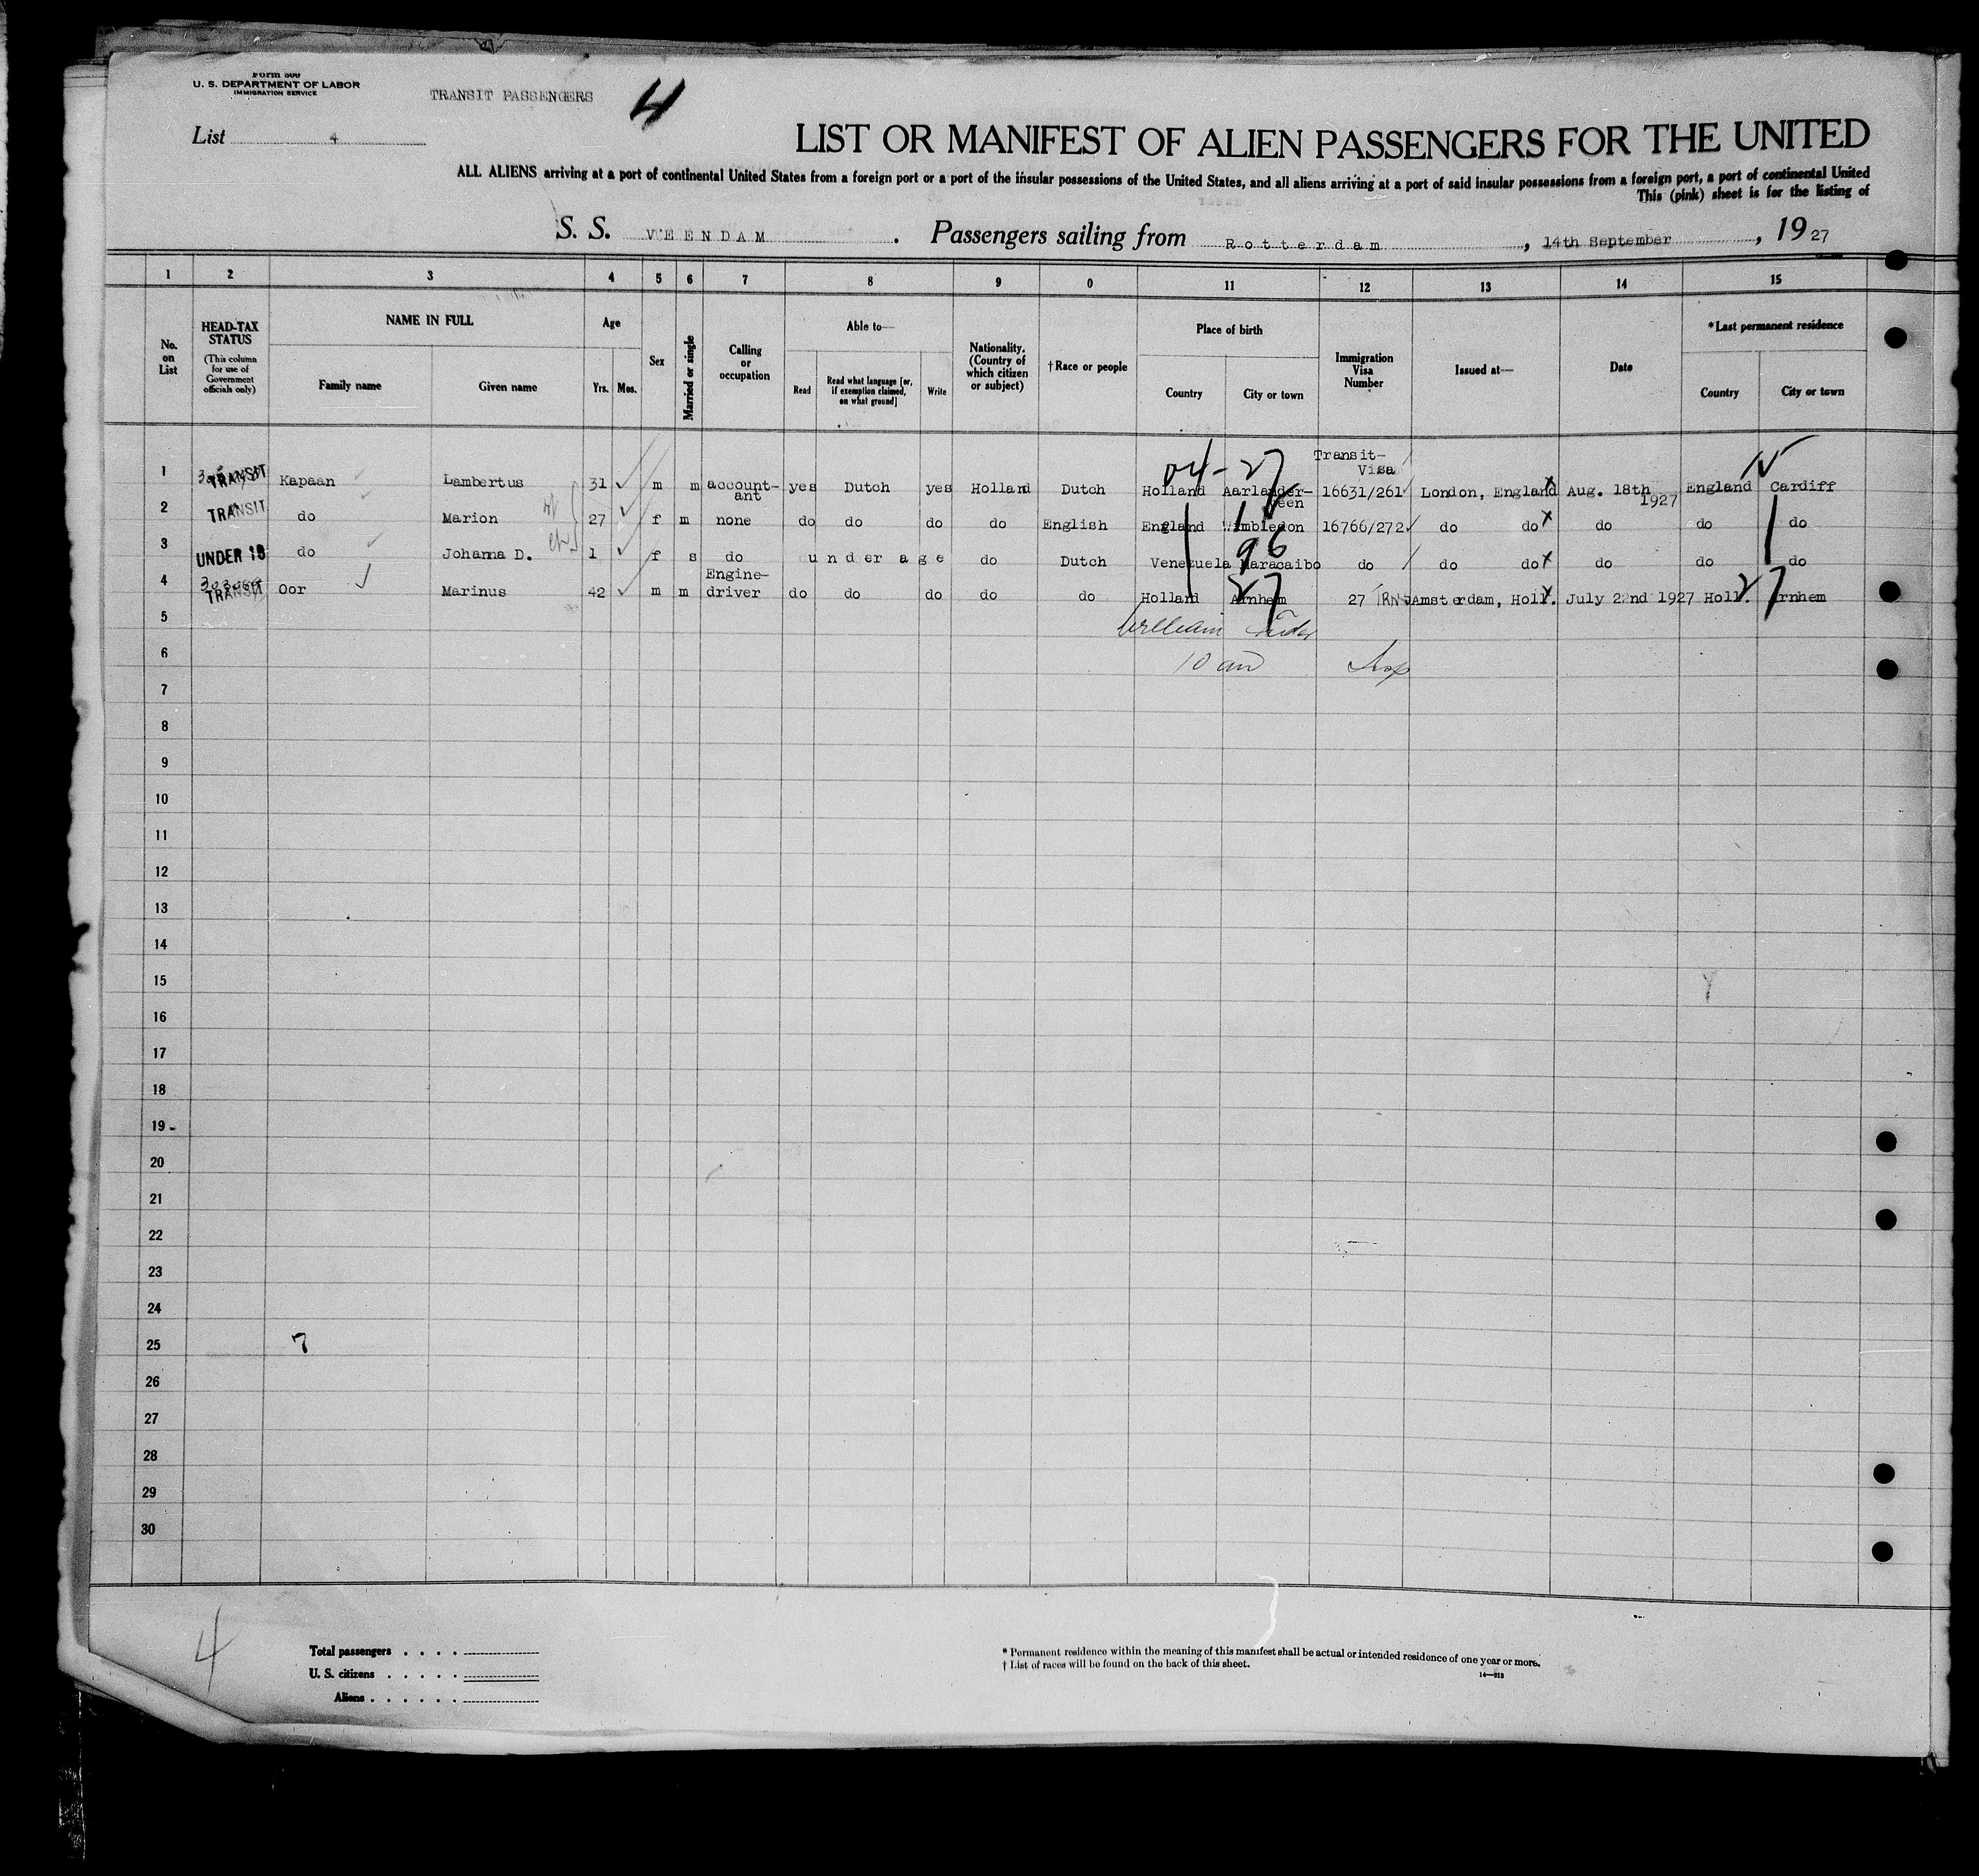 Form 500
U. S. DEPARTMENT OF LABOR
IMMIGRATION SERVICE
TRANSIT PASSENGERS
4
List 4
LIST OR MANIFEST OF ALIEN PASSENGERS FOR THE UNITED
ALL ALIENS arriving at a port of continental United States from a foreign port or a port of the insular possessions of the United States, and all aliens arriving at a port of said insular possessions from a foreign port, a port of continental United
This (pink) sheet is for the listing of
S. S. VEENDAM . Passengers sailing from Rotterdam , 14th September , 1927
1 2 3 4 5 6 7 8 9 0 11 12 13 14 15
No. on List
HEAD-TAX STATUS (This column for use of Government officials only)
NAME IN FULL
Family name
Given name
Age
Yrs. Mos.
Sex
Married or single
Calling or occupation
Able to—
Read
Read what language [or, if exemption claimed, on what ground]
Write
Nationality. (Country of which citizen or subject)
†Race or people
Place of birth
Country
City or town
Immigration Visa Number
Issued at—
Date
*Last permanent residence
Country
City or town
Transit-Visa
1 TRANSIT Kapaan Lambertus 31 m m account-ant yes Dutch yes Holland Dutch Holland Aarlander-veen 16631/261 London, England Aug. 18th 1927 England Cardiff
2 TRANSIT do Marion 27 f m none do do do do English England Wimbledon 16766/272 do do do do do
3 UNDER 16 do Johanna D. 1 f s do under age do Dutch Venezuela Maracaibo do do do do do do
4 TRANSIT Oor Marinus 42 m m Engine-driver do do do do do Holland Arnhem 27 Amsterdam, Holl. July 22nd 1927 Holl. Arnhem
04-27
96
27
27
5 William
6 10 am
7
8
9
10
11
12
13
14
15
16
17
18
19
20
21
22
23
24
25 7
26
27
28
29
30
4
Total passengers . . . .
U. S. citizens . . . . .
Aliens . . . . . .
* Permanent residence within the meaning of this manifest shall be actual or intended residence of one year or more.
† List of races will be found on the back of this sheet.
14—213